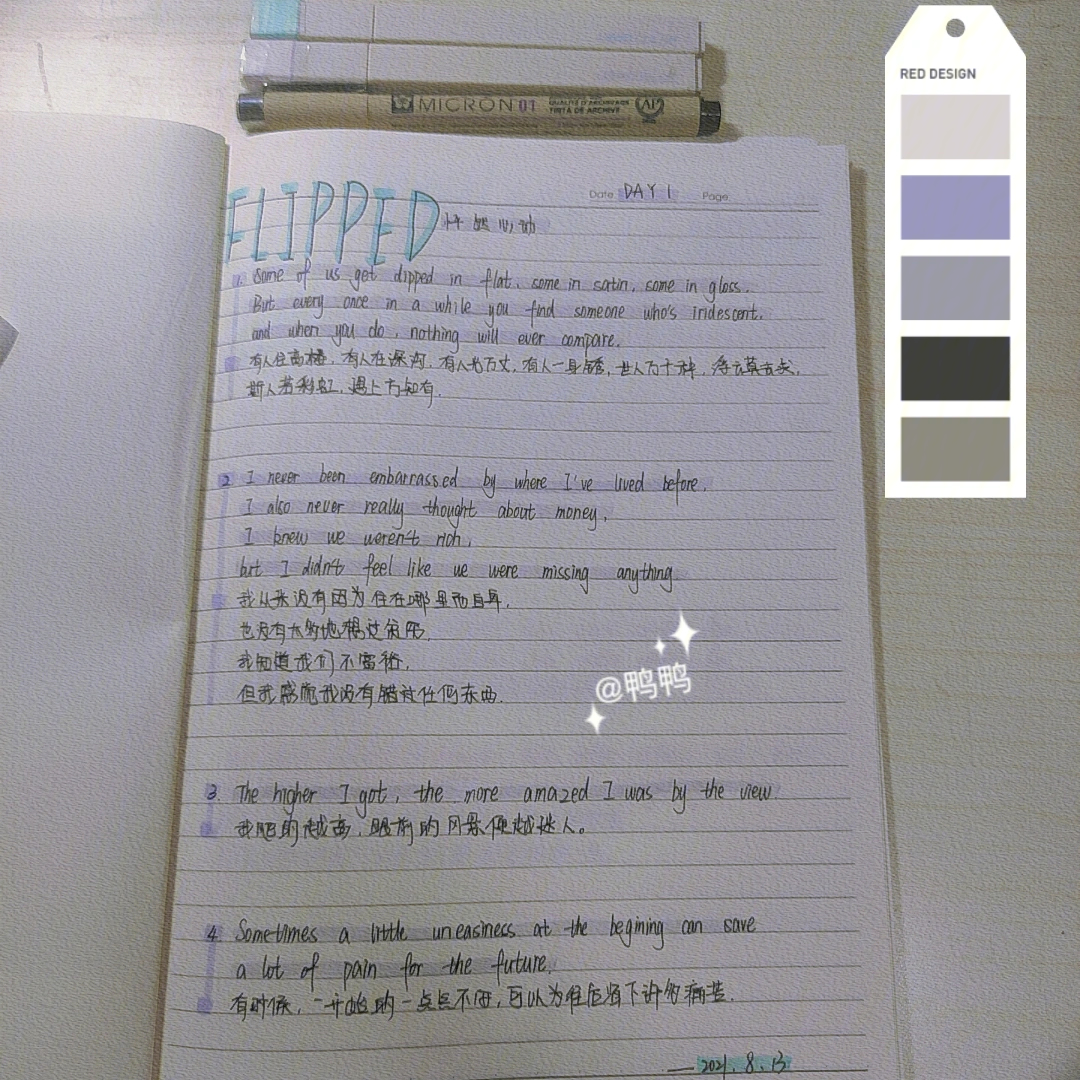 MICRON 01
QUALITÉ D'ARCHIVAGE
TINTA DE ARCHIVE
RED DESIGN
Date DAY 1 Page
FLIPPED 怦然心动
1. Some of us get dipped in flat, some in satin, some in gloss.
But every once in a while you find someone who's iridescent.
and when you do, nothing will ever compare.
有人住高楼，有人在深沟，有人光万丈，有人一身锈，世人万千种，浮云莫去求，
斯人若彩虹，遇上方知有.
2 I never been embarrassed by where I've lived before.
I also never really thought about money,
I knew we weren't rich,
but I didn't feel like we were missing anything
我从来没有因为住在哪里而自卑.
也没有太多地想过金钱.
我知道我们不富裕,
但我感觉我没有错过任何东西.
@鸭鸭
3. The higher I got, the more amazed I was by the view
我爬的越高，眼前的风景便越迷人。
4. Sometimes a little uneasiness at the begining can save
a lot of pain for the future.
有时候，一开始的一点点不,可以为往后省下许多痛苦.
2021.8.13